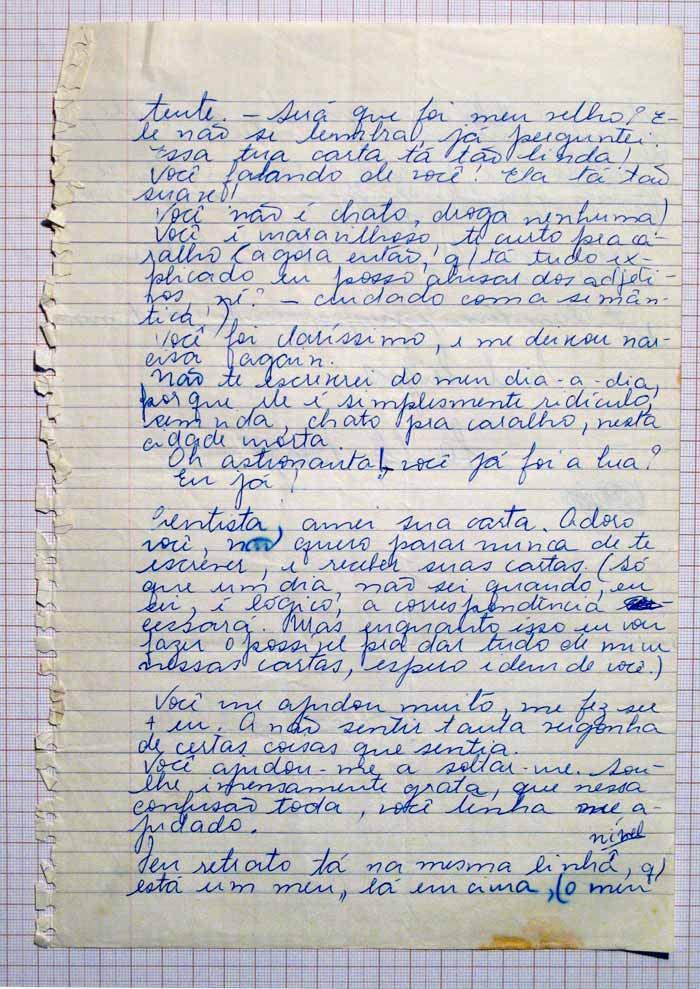 tente. - Será que foi meu velho? E-
le não se lembra, já perguntei.
Essa tua carta tá tão linda!
Você falando de você! Ela tá tão
suave!
Você não é chato, droga nenhuma!
Você é maravilhoso, te curto pra ca-
ralho (agora então, q/ tá tudo ex-
plicado eu posso abusar dos adjeti-
vos, né? - cuidado com a semân-
tica!)
Você foi claríssimo, e me deixou nar-
cisa again.
Não te escreverei do meu dia-a-dia,
porque ele é simplesmente ridículo,
ainda, chato pra caralho, nesta
cidade morta.
Oh astronauta!, você já foi a lua?
Eu já!
Cientista, amei sua carta. Adoro
você, não quero parar nunca de te
escrever, e receber suas cartas. (Só
que um dia, não sei quando, eu
sei, é lógico, a correspondência
cessará. Mas enquanto isso eu vou
fazer o possível pra dar tudo de mim
nessas cartas, espero idem de você.)
Você me ajudou muito, me fez ser
+ eu. A não sentir tanta vergonha
de certas coisas que sentia.
Você ajudou-me a soltar-me. Sou-
lhe imensamente grata, que nessa
confusão toda, você tenha me a-
judado.
nível
Seu retrato tá na mesma linha, q/
está um meu, lá em cima, (o meu